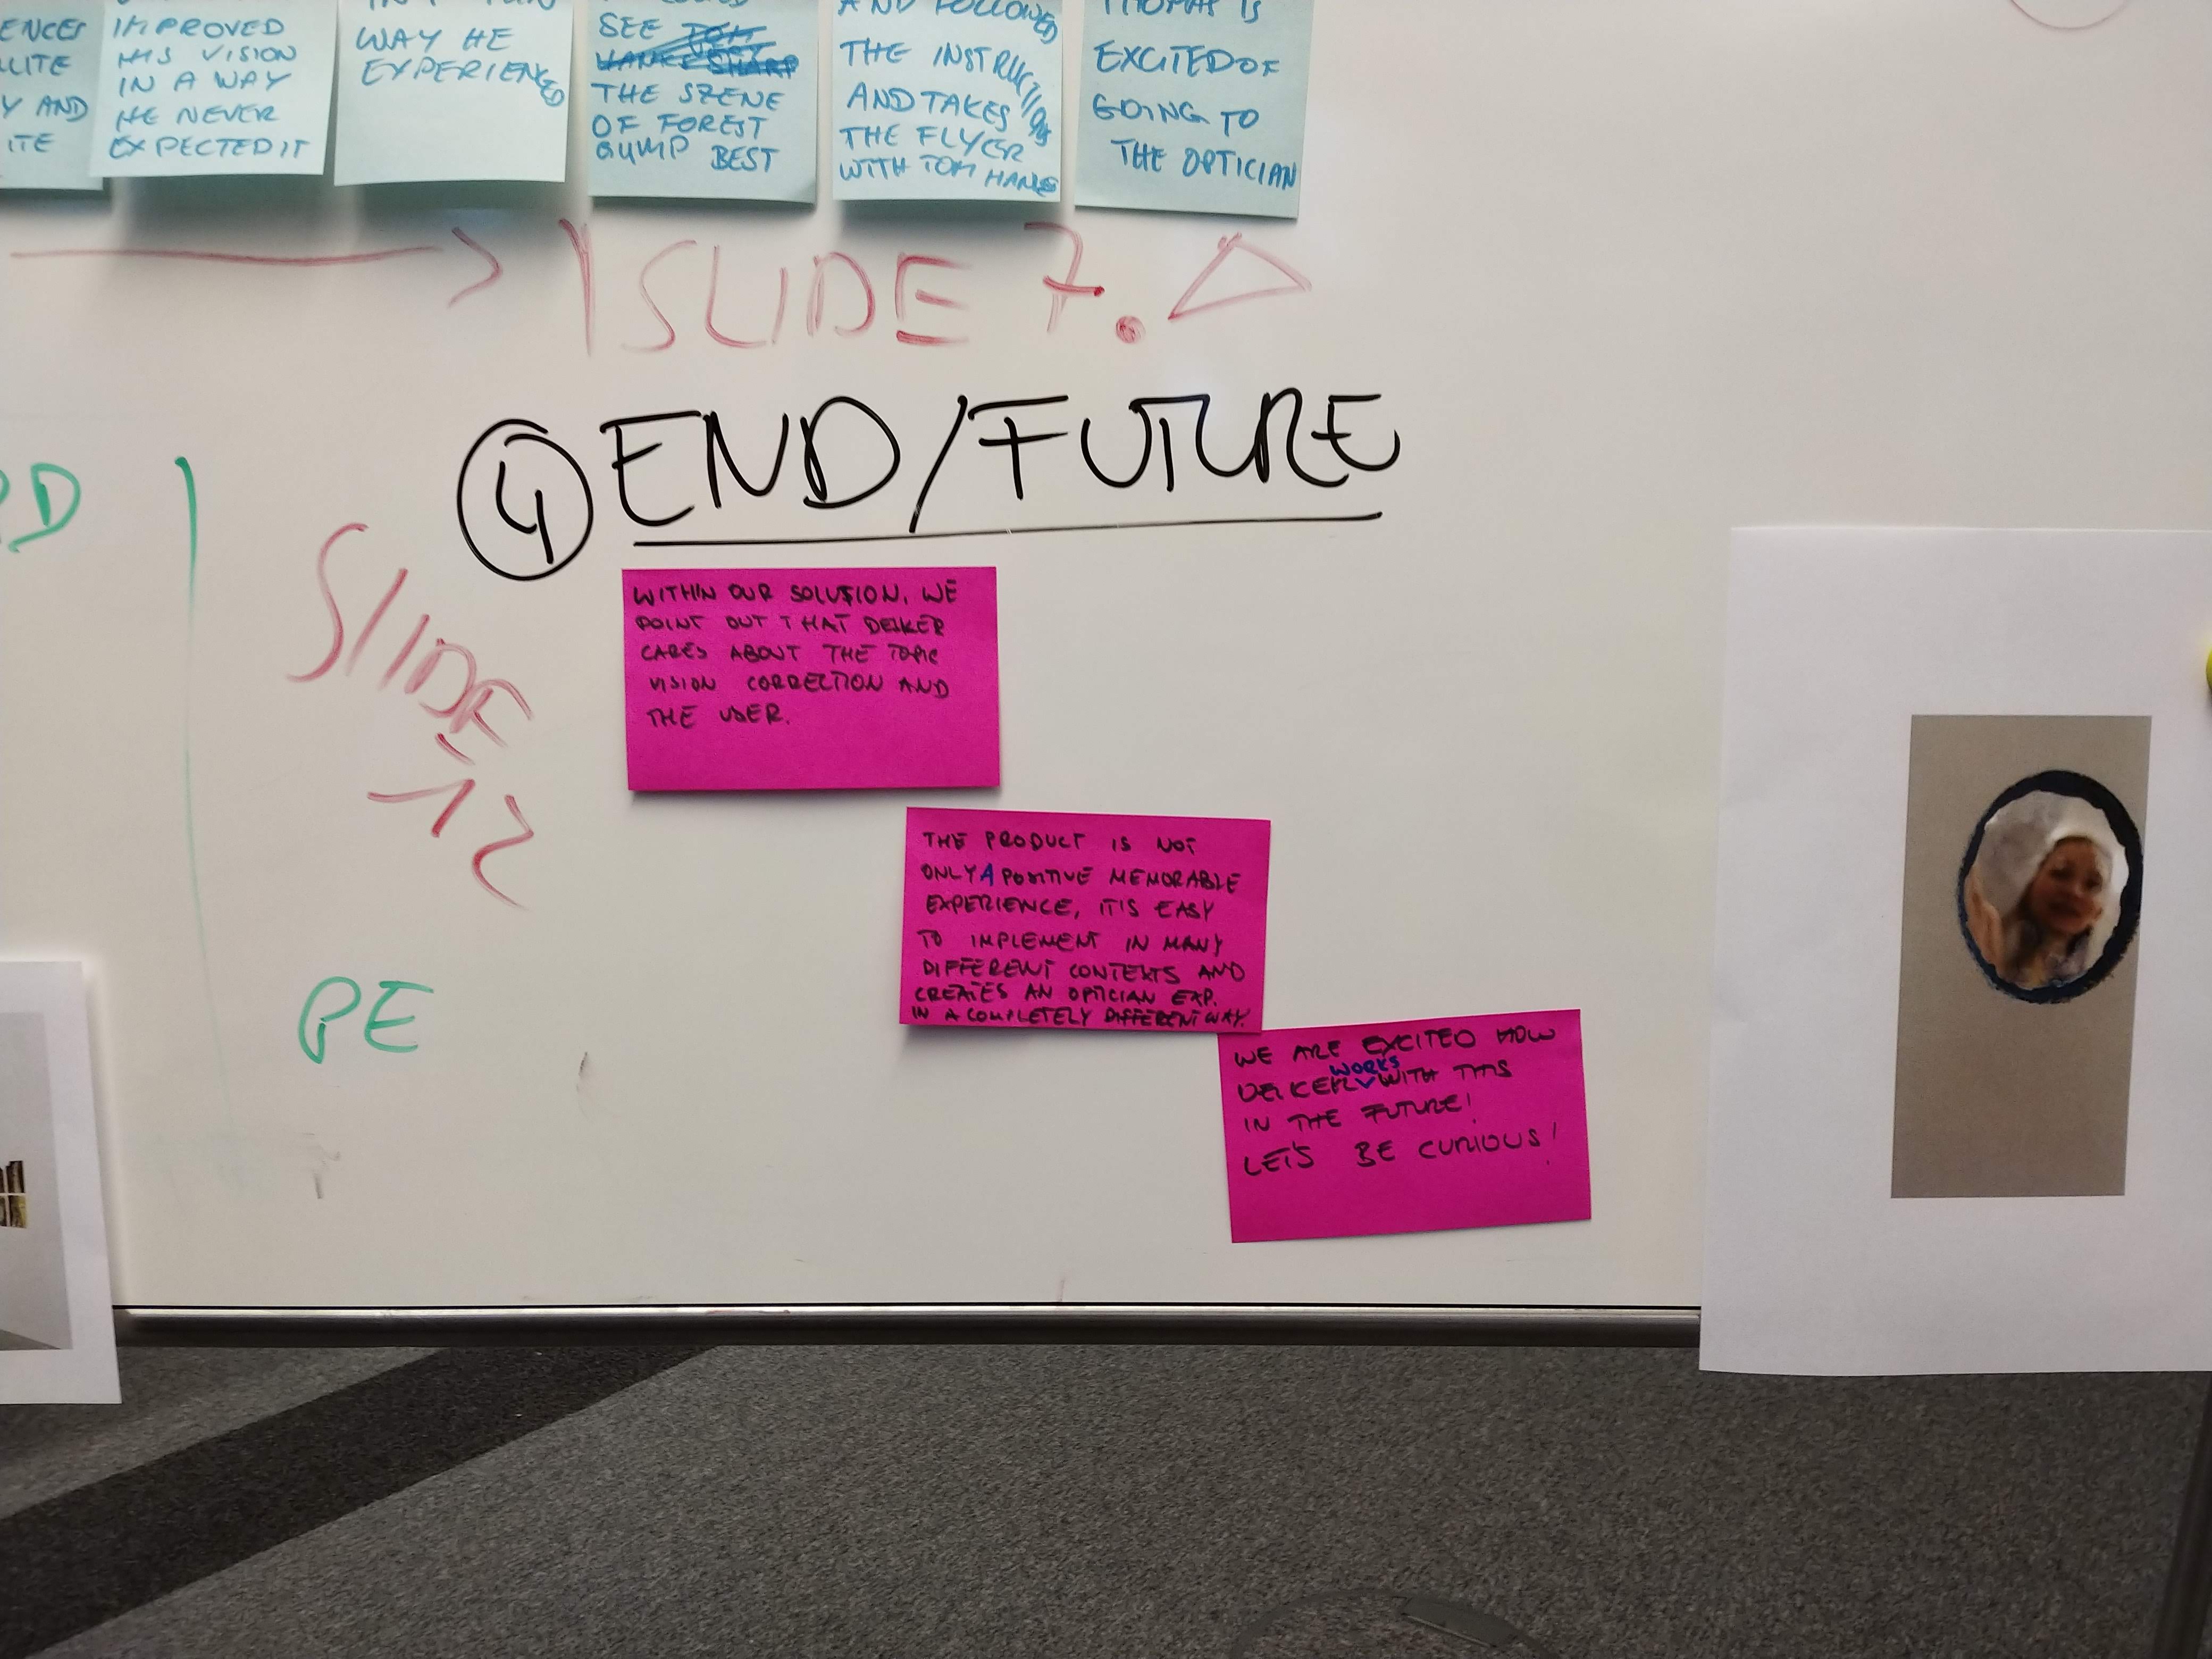 ENCES
LLITE
Y AND
ITE
IMPROVED
HIS VISION
IN A WAY
HE NEVER
EXPECTED IT
WAY HE
EXPERIENCED
SEE TOM
HANKS VERY SHARP
THE SZENE
OF FOREST
GUMP BEST
AND FOLLOWED
THE INSTRUCTIONS
AND TAKES
THE FLYER
WITH TOM HANKS
THOMAS IS
EXCITED OF
GOING TO
THE OPTICIAN
SLIDE 7.
4 END/FUTURE
RD
SLIDE
12
PE
WITHIN OUR SOLUTION, WE
POINT OUT THAT DEIKER
CARES ABOUT THE TOPIC
VISION CORRECTION AND
THE USER.
THE PRODUCT IS NOT
ONLY A POSITIVE MEMORABLE
EXPERIENCE, IT'S EASY
TO IMPLEMENT IN MANY
DIFFERENT CONTEXTS AND
CREATES AN OPTICIAN EXP.
IN A COMPLETELY DIFFERENT WAY.
WE ARE EXCITED HOW
DEIKER WORKS WITH THIS
IN THE FUTURE!
LET'S BE CURIOUS!